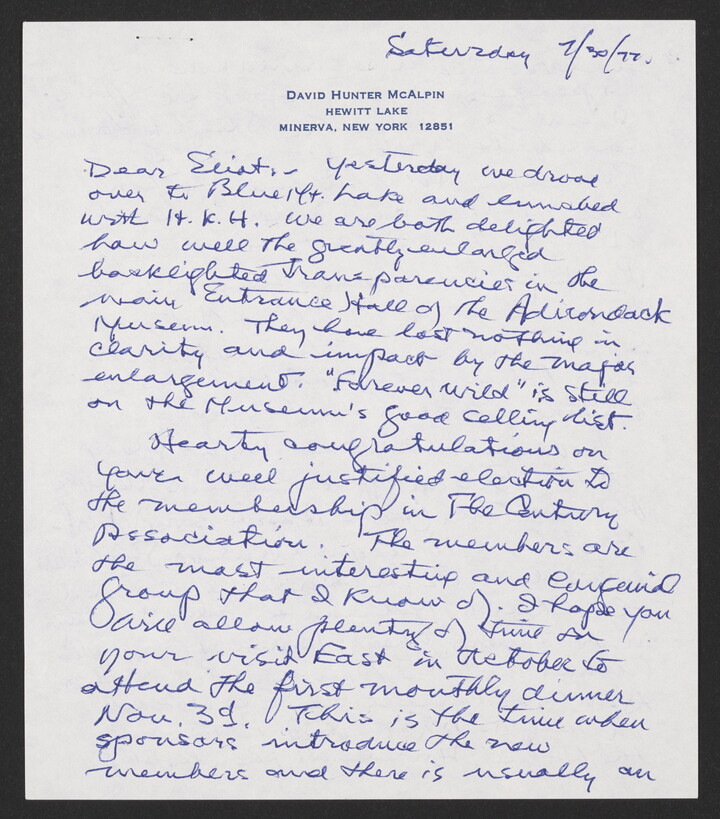 Saturday 7/30/77.
DAVID HUNTER MCALPIN
HEWITT LAKE
MINERVA, NEW YORK 12851
Dear Eliot:- Yesterday we drove
over to Blue Mt. Lake and lunched
with H.K.H. We are both delighted
how well the greatly enlarged
backlighted Transparencies in the
main Entrance Hall of the Adirondack
Museum. They have lost nothing in
clarity and impact by the major
enlargement. "Forever Wild" is still
on the Museum's good selling list.
Hearty congratulations on
your well justified election to
the membership in The Century
Association. The members are
the most interesting and congenial
group that I know of. I hope you
will allow plenty of time on
your visit East in October to
attend the first monthly dinner
Nov. 3d. This is the time when
sponsors introduce the new
members and there is usually an